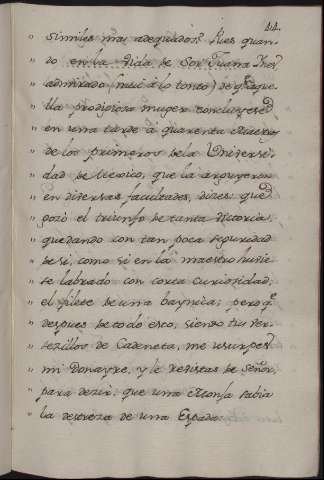 44.
" Similes mas adequados? Pues quan-
" do en la Vida de Sor Juana
" admirado (mui á lo tonto) de q.e aque-
" lla prodigiosa muger concluyese
" en una tarde á quarenta
" de los primeros de la Universi-
" dad de Mexico, que la arguyeron
" en diversas facultades, dices: que
" gozó el triunfo de tanta Victoria,
" quedando con tan poca seguridad
" de si, como si en la maestra huvie-
" se labrado con corta curiosidad,
" el filete de una baynica; pero q.e
" despues de todo esto, siendo tus ver-
" sezillos de Cadeneta, me usurpes
" mi Donayre, y le revistas de Señor,
" para dezir, que una Monja sabia
" la destreza de una Espada